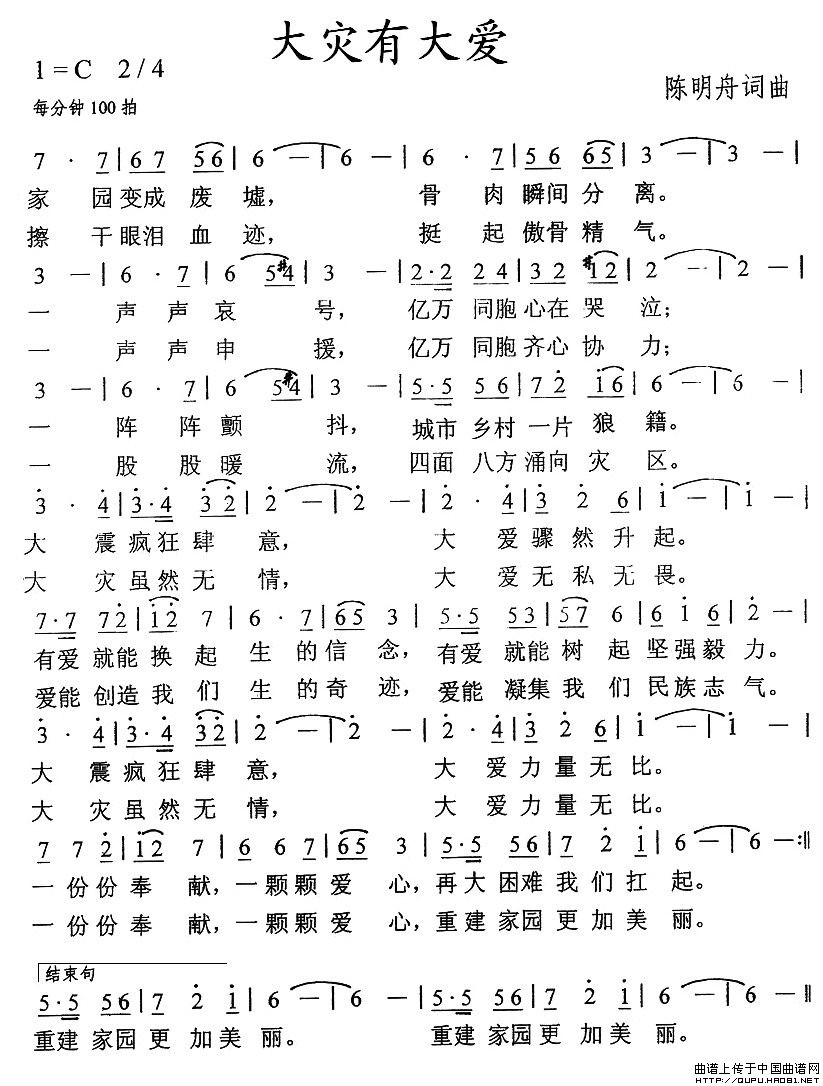 大灾有大爱
1=C 2/4
陈明舟词曲
每分钟100拍
7 · 7 | 6 7 5 6 | 6 — | 6 — | 6 · 7 | 5 6 6 5 | 3 — | 3 — |
家 园变成 废 墟, 骨 肉 瞬间 分 离。
擦 干眼泪 血 迹, 挺 起 傲骨 精 气。
3 — | 6 · 7 | 6 5 #4 | 3 — | 2 · 2 2 4 | 3 2 #1 2 | 2 — | 2 — |
一 声 声 哀 号, 亿万 同胞 心在 哭 泣;
一 声 声 申 援, 亿万 同胞 齐心 协 力;
3 — | 6 · 7 | 6 5 #4 | 3 — | 5 · 5 5 6 | 7 2 1 6 | 6 — | 6 — |
一 阵 阵 颤 抖, 城市 乡村 一片 狼 籍。
一 股 股 暖 流, 四面 八方 涌向 灾 区。
3 · 4 | 3 · 4 3 2 | 2 — | 2 — | 2 · 4 | 3 2 6 | 1 — | 1 — |
大 震疯狂 肆 意, 大 爱 骤 然 升 起。
大 灾虽然 无 情, 大 爱 无 私 无 畏。
7 · 7 7 2 | 1 2 7 | 6 · 7 | 6 5 3 | 5 · 5 5 3 | 5 7 6 | 6 1 6 | 2 — |
有爱 就能 换 起 生 的 信 念, 有爱 就能 树 起 坚强毅 力。
爱能 创造 我 们 生 的 奇 迹, 爱能 凝集 我 们 民族志 气。
3 · 4 | 3 · 4 3 2 | 2 — | 2 — | 2 · 4 | 3 2 6 | 1 — | 1 — |
大 震疯狂 肆 意, 大 爱 力 量 无 比。
大 灾虽然 无 情, 大 爱 力 量 无 比。
7 7 2 | 1 2 7 | 6 6 7 | 6 5 3 | 5 · 5 5 6 | 7 2 1 | 6 — | 6 — :‖
一份份 奉 献, 一颗颗 爱 心, 再大 困难 我 们 扛 起。
一份份 奉 献, 一颗颗 爱 心, 重建 家园 更 加 美 丽。
结束句
5 · 5 5 6 | 7 2 1 | 6 — | 6 — | 5 · 5 5 6 | 7 2 1 | 6 — | 6 — ‖
重建 家园 更 加美 丽。 重建 家园 更 加美 丽。
曲谱上传于中国曲谱网
HTTP://QUPU.HAO81.NET